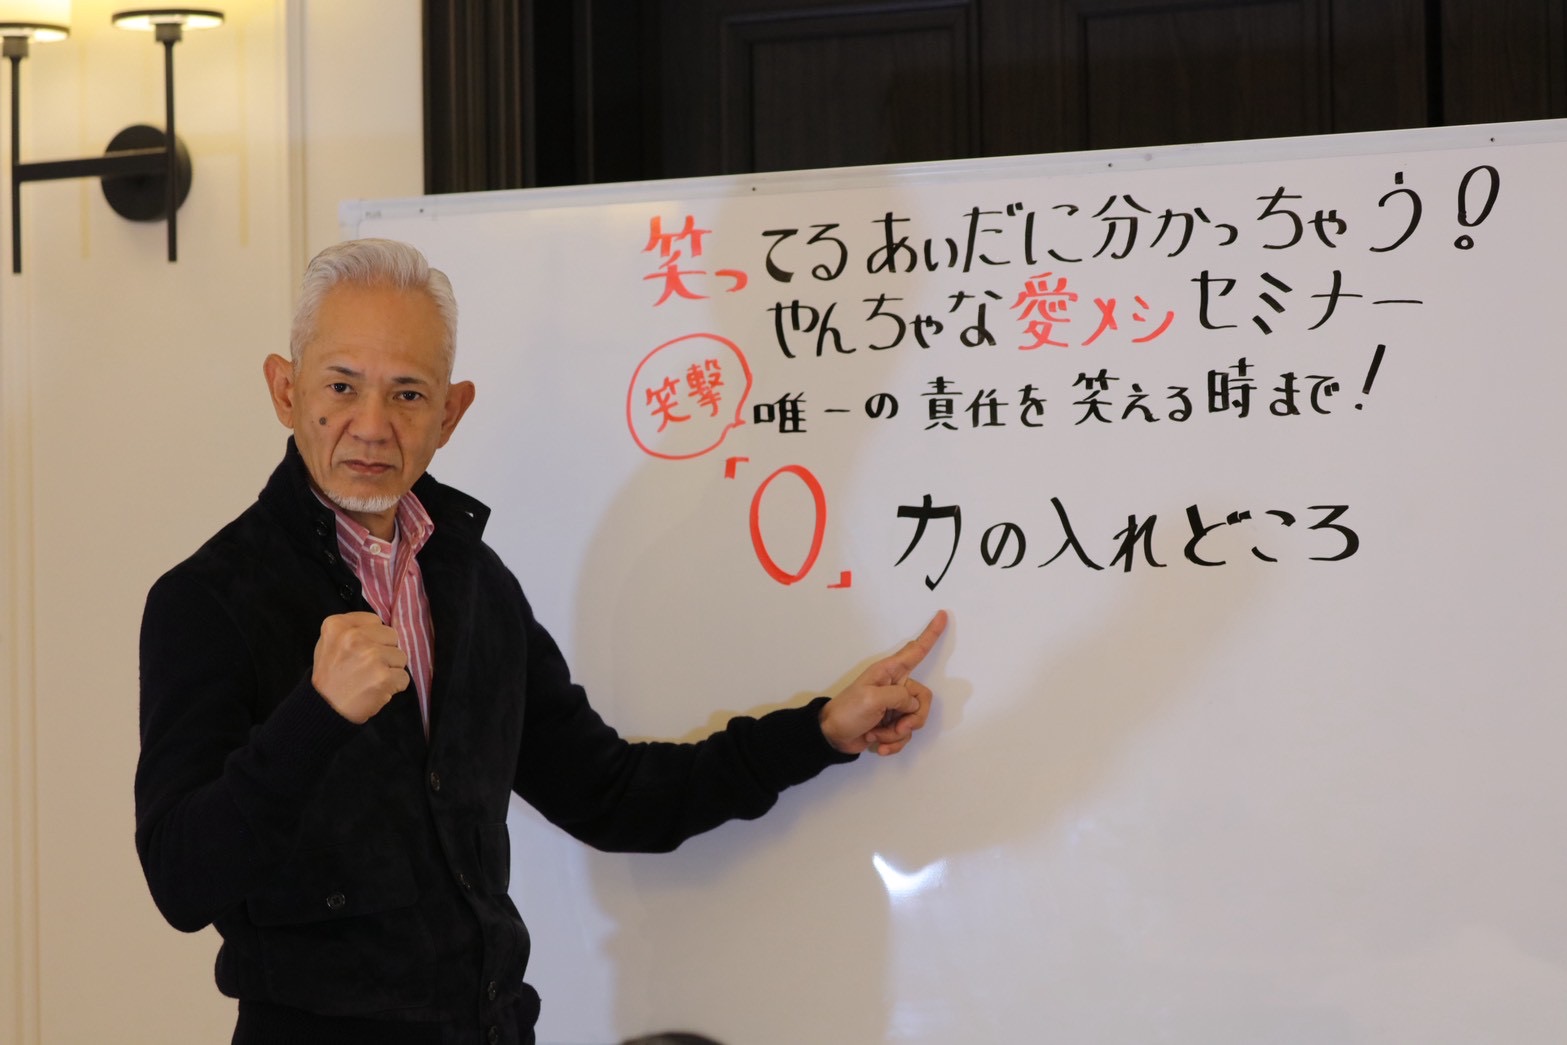 笑ってるあいだに分かっちゃう!
やんちゃな愛メシセミナー
笑撃
唯一の責任を笑える時まで!
「0」 力の入れどころ